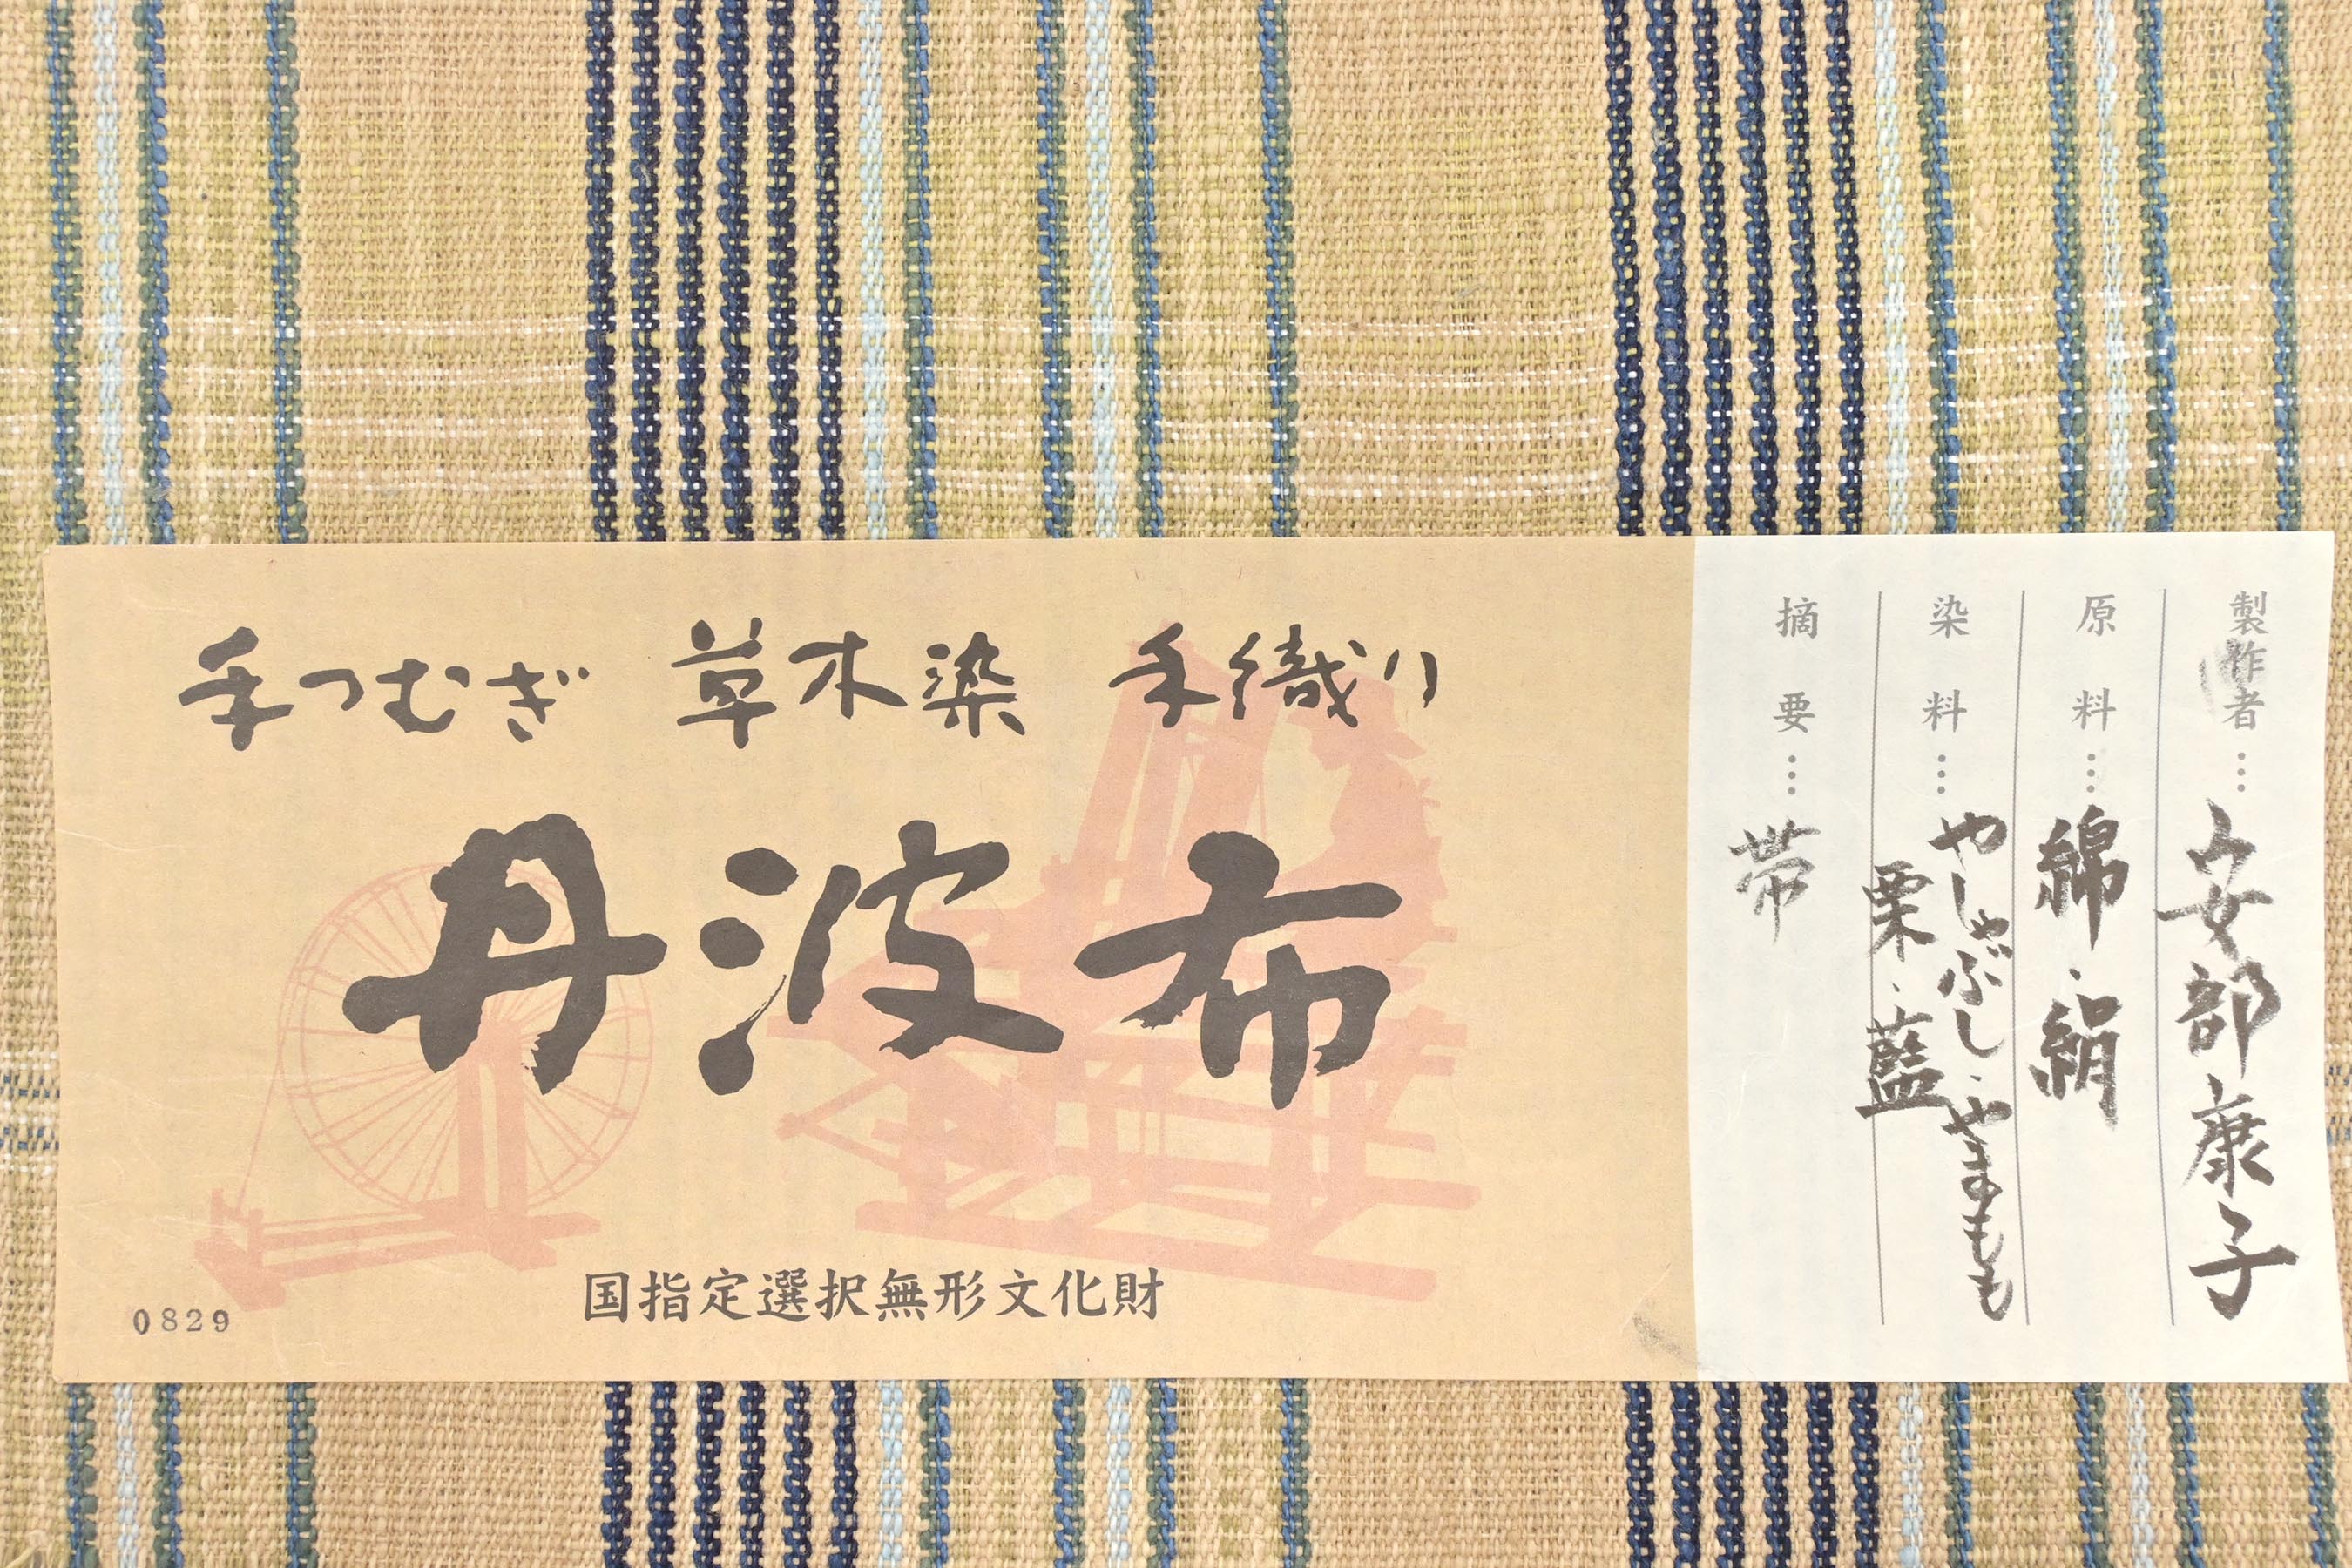 手つむぎ 草木染 手織り
丹波布
国指定選択無形文化財
0829
製作者…安部康子
原料…綿・絹
染料…やしゃぶし・やまもも
栗・藍
摘要…帯